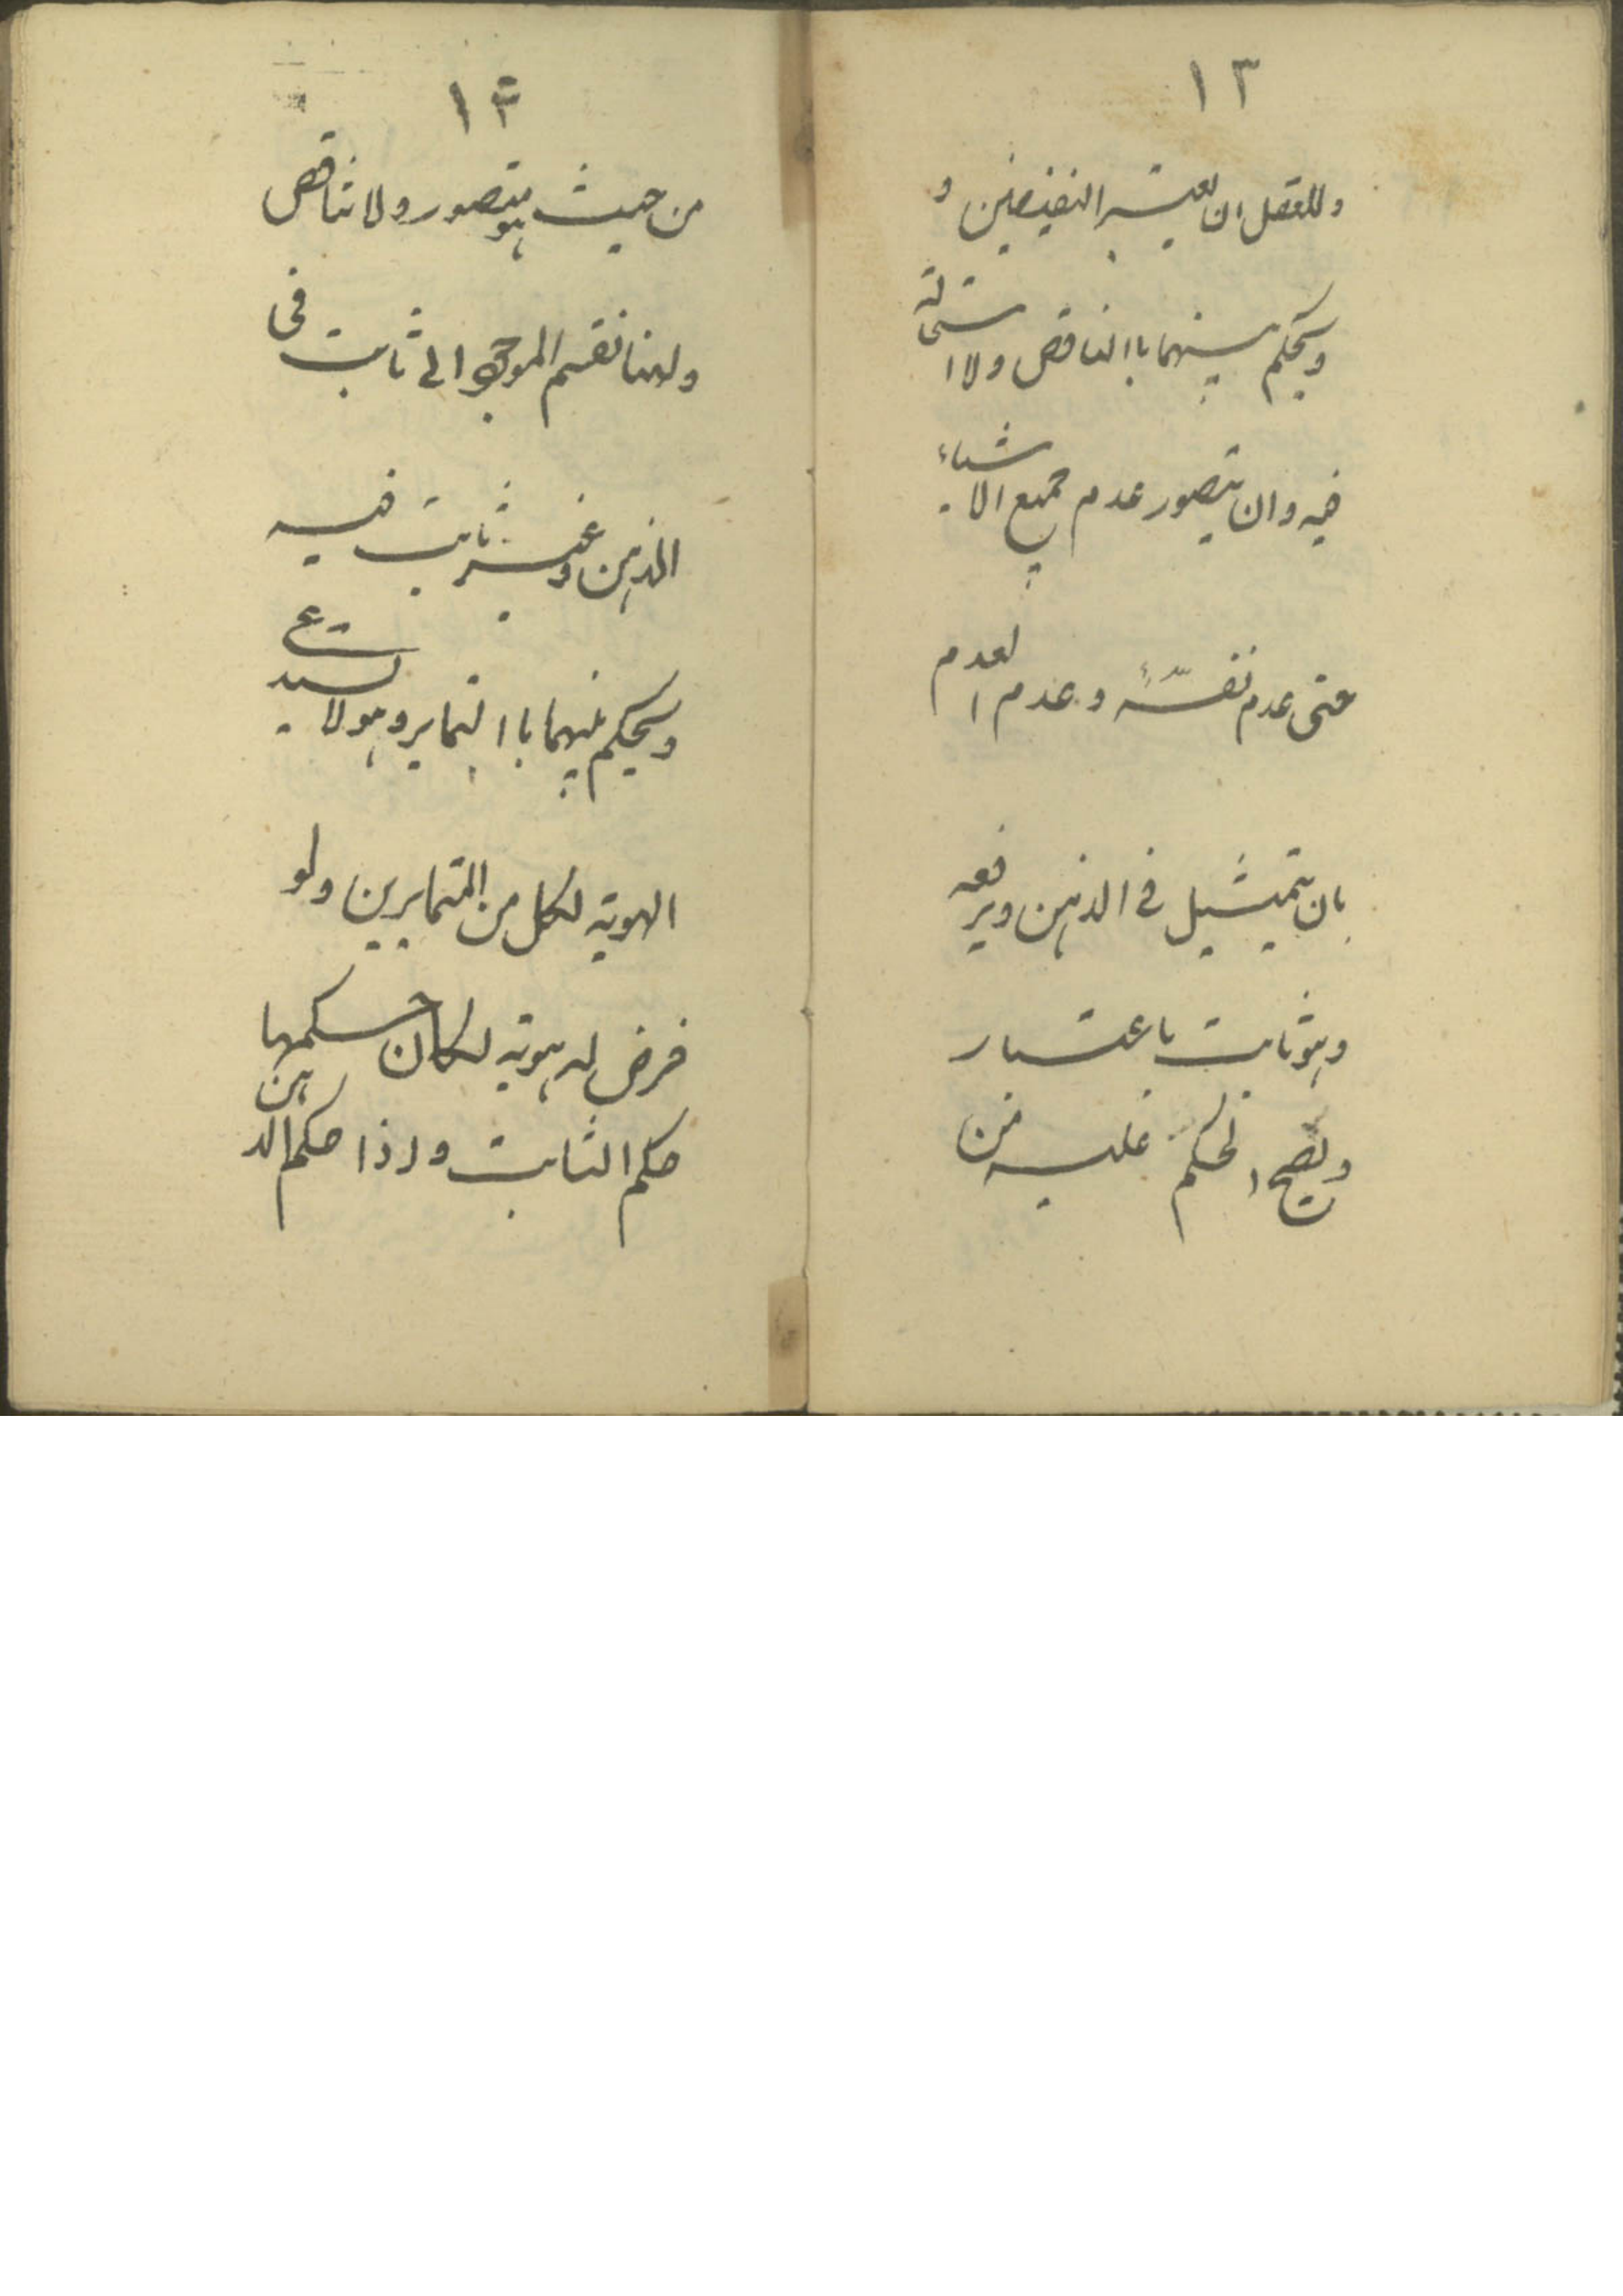 ١٣
وللعقل ان يعتبر النقيضين و
ويحكم بينهما باالتناقض ولا استحالة
فيه وان يتصور عدم جميع الاشياء
حتى عدم نفسه وعدم العدم
بان يتمثيل في الذهن ويرفعه
وهو ثابت باعتبار
ويصح الحكم عليه من
١۴
من حيث هو متصور ولا تناقض
ولهذا نقسم الموجود الى ثابت في
الذهن وغير ثابت فيه
ويحكم بينهما باالتمايز وهو لا يستدعى
الهوية لكل من المتمايزين ولو
فرض له هوية لكان حكمها
حكم الثابت واذا حكم الذهن